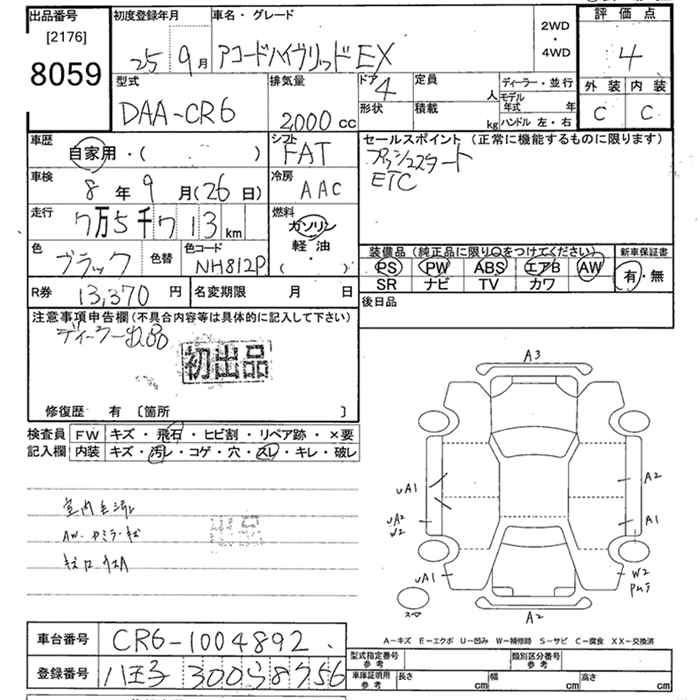 出品番号
[2176]
8059
初度登録年月
25 9月
車名・グレード
アコードハイヴリッドEX
2WD
・
4WD
評価点
4
外装 内装
C C
型式
DAA-CR6
排気量
2,000 cc
ドア 4
形状
定員
人
積載
kg
ディーラー・並行
モデル年式 年
ハンドル 左・右
車歴
自家用・( )
シフト
FAT
車検
8年9月(26日)
冷房
AAC
走行
7万5千713km
燃料
ガソリン
軽・油
( ・ )
色
ブラック
色替
色コード
NH812P
R券
13,370円
名変期限 月 日
セールスポイント(正常に機能するものに限ります)
プッシュスタート
ETC
装備品(純正品に限り○をつけてください)
新車保証書
PS PW ABS エアB AW
SR ナビ TV カワ
有・無
後日品
注意事項申告欄(不具合内容等は具体的に記入して下さい)
初出品
修復歴 有 [箇所 ]
検査員
記入欄
FW キズ・飛石・ヒビ割・リペア跡・×要
内装 キズ・汚レ・コゲ・穴・スレ・キレ・破レ
A3
uA1
uA2
W2
uA1
A2
A1
W2
A2
A-キズ E-エクボ U-凹み W-補修跡 S-サビ C-腐食 XX-交換済
車台番号
CR6-1004892
登録番号
八王子 300 8756
型式指定番号
参考
類別区分番号
参考
車庫証明用
参考
長さ cm
幅 cm
高さ cm